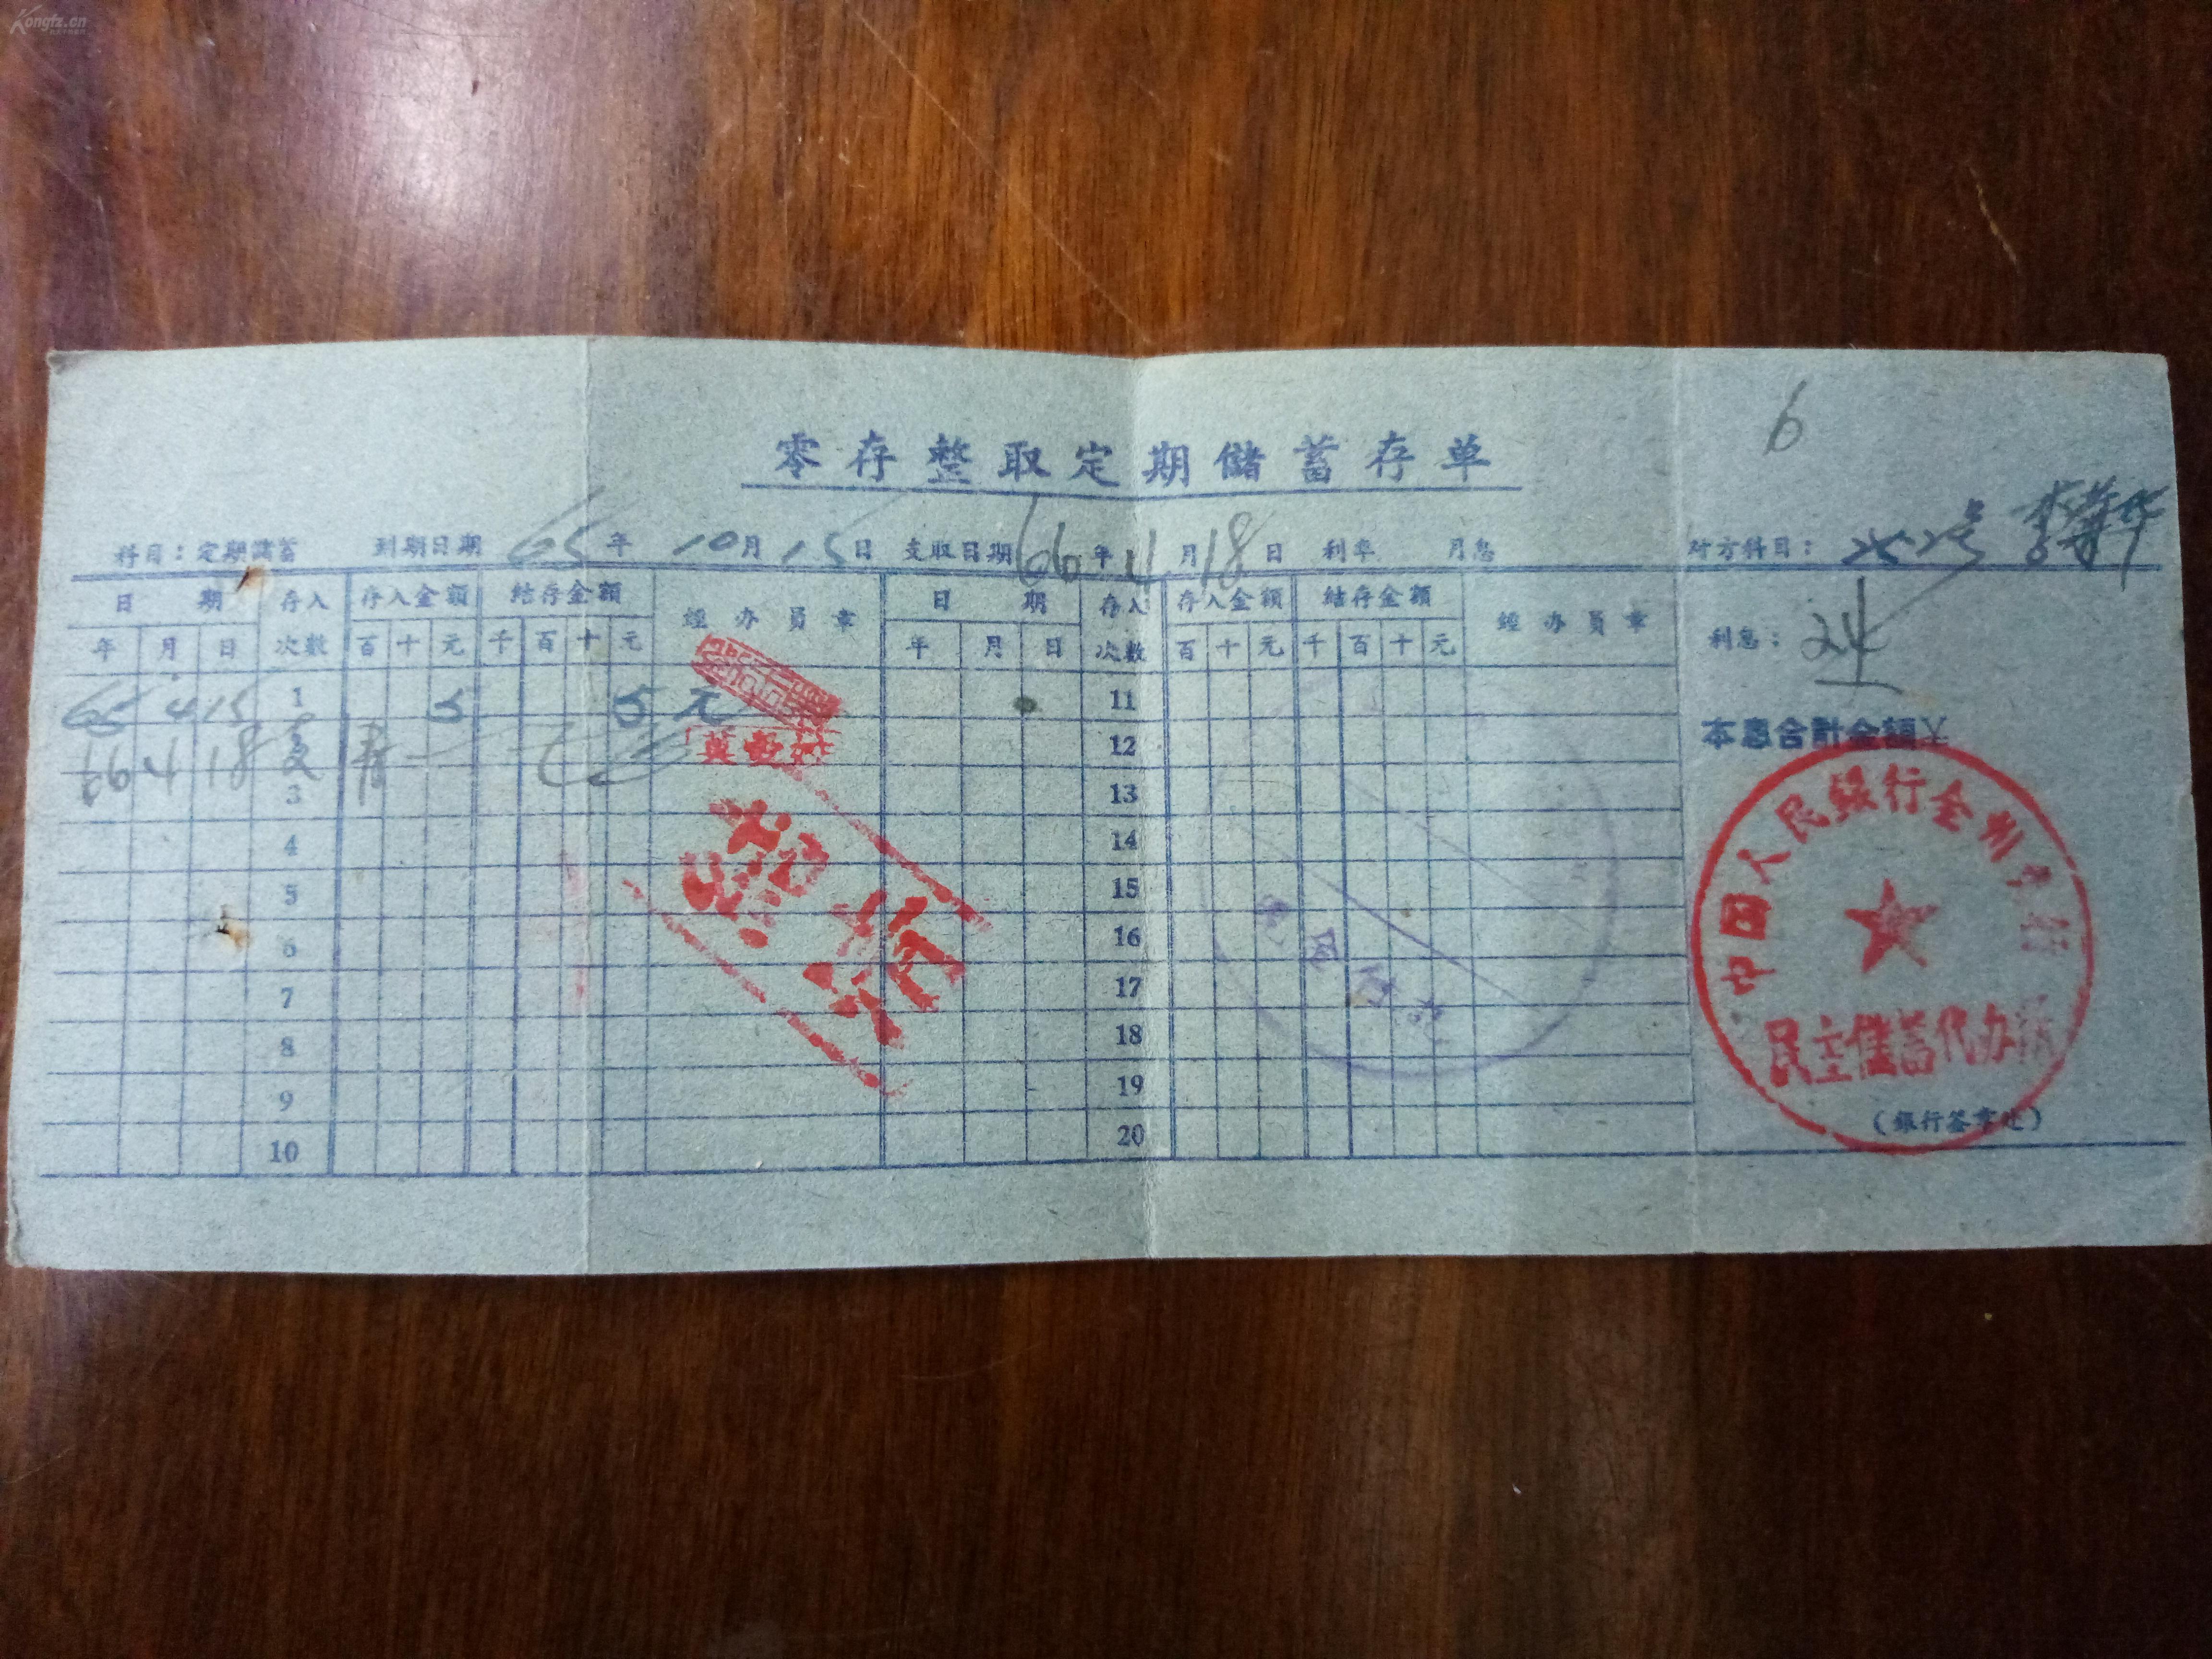 Kongfz.cn
6
零存整取定期儲蓄存单
科目：定期儲蓄 到期日期 65年10月15日 支取日期66年4月18日 利率 月息 对方科目：
日期 存入次数 存入金額 結存金額 經办員章 日期 存入次数 存入金額 結存金額 經办員章
年 月 日 百 十 元 千 百 十 元 年 月 日 百 十 元 千 百 十 元
利息：24
65 4 15 1 5 5元 11
66 4 18 12
本息合計金額
3 13
4 14
5 15
6 16
7 17
8 18
9 19
10 20
中国人民銀行全州
民主儲蓄代办
（銀行签章处）